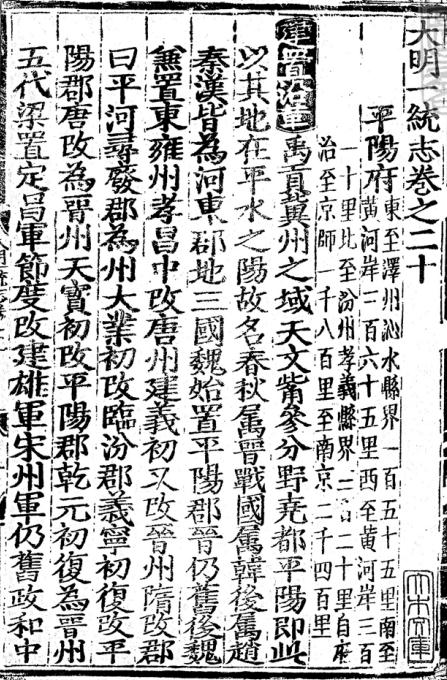 大明一統志卷之二十
平陽府
東至澤州沁水縣界一百五十五里南至
黃河岸二百六十五里西至黃河岸三百
一十里北至汾州孝義縣界三百二十里自府
治至京師一千八百里至南京二千四百里
建置沿革
禹貢冀州之域天文觜參分野堯都平陽即此
以其地在平水之陽故名春秋屬晉戰國屬韓後屬趙
秦漢皆為河東郡地三國魏始置平陽郡晉仍舊後魏
兼置東雍州孝昌中改唐州建義初又改晉州隋改郡
曰平河尋廢郡為州大業初改臨汾郡義寧初復改平
陽郡唐改為晉州天寶初改平陽郡乾元初復為晉州
五代梁置定昌軍節度改建雄軍宋州軍仍舊政和中